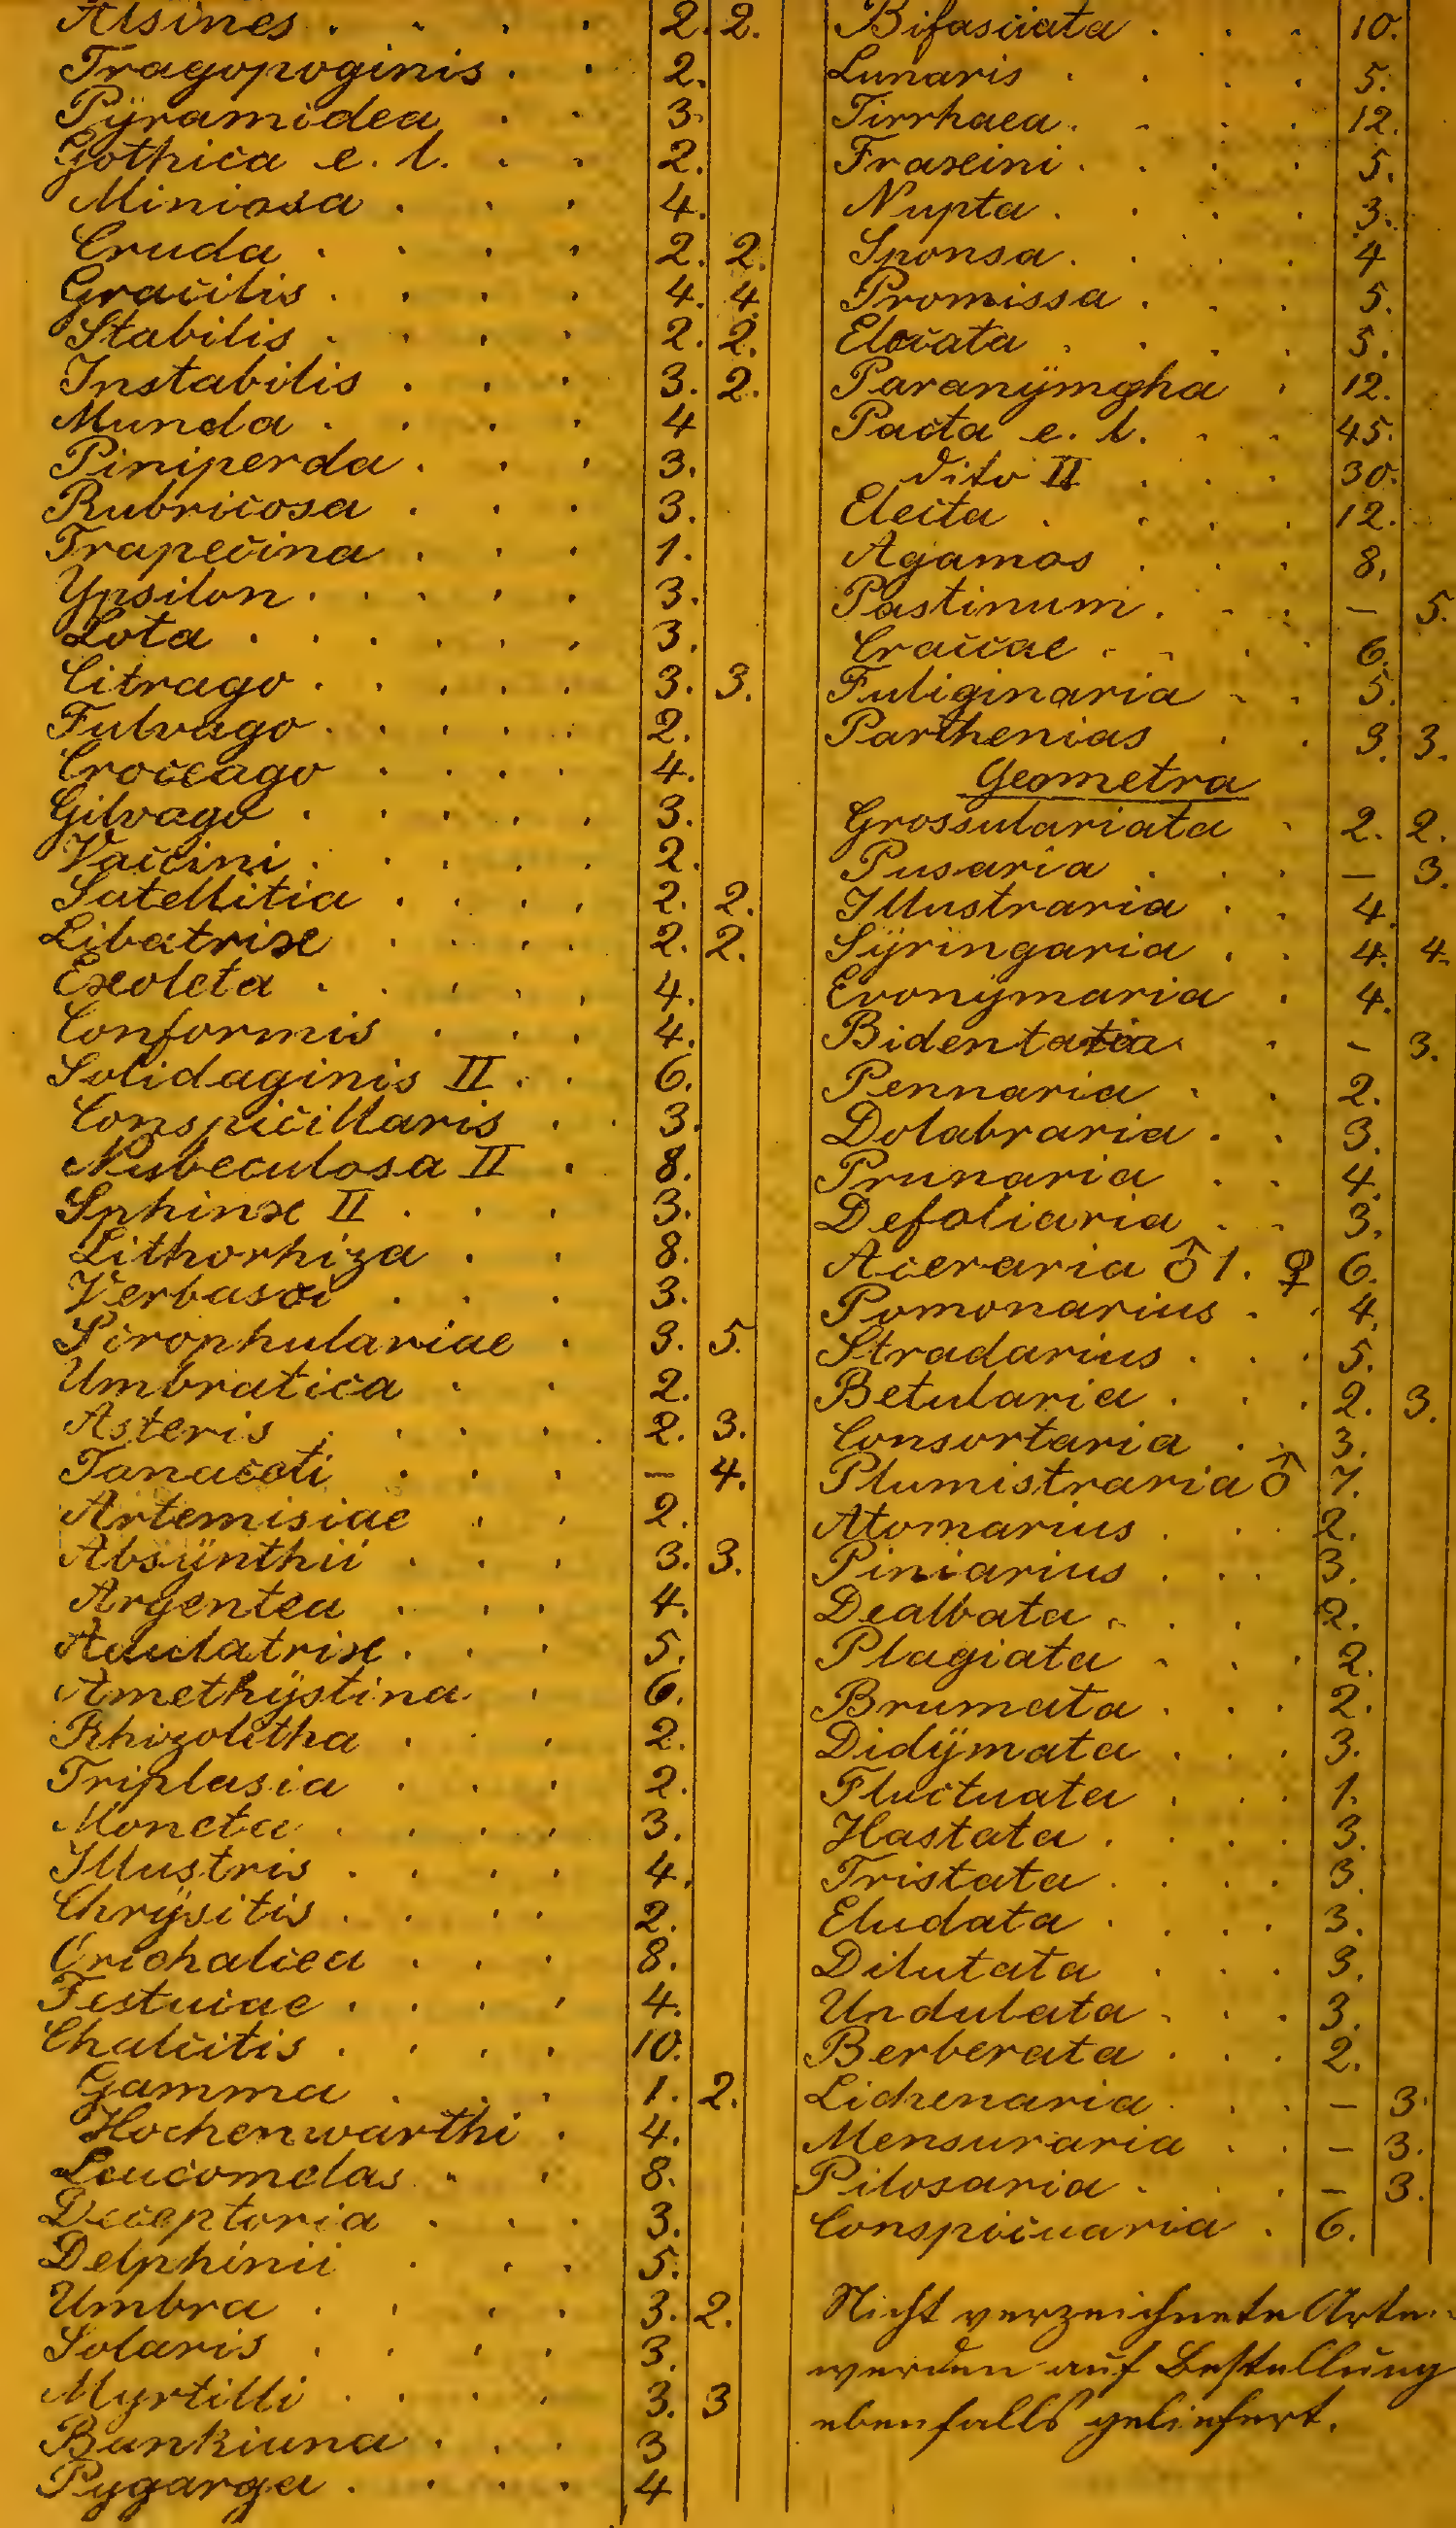 Alsines . . . . 2. 2.
Tragopoginis . . 2.
Pÿramidea . . 3.
Gothica e. l. . . 2.
Miniosa . . . 4.
Cruda . . . . 2. 2.
Gracilis . . . . 4. 4.
Stabilis . . . . 2. 2.
Instabilis . . . 3. 2.
Munda . . . . 4
Piniperda . . . 3.
Rubricosa . . . 3.
Trapecina . . . 1.
Ypsilon . . . . . 3.
Lota . . . . . . 3.
Citrago . . . . . 3. 3.
Fulvago . . . . . 2.
Croceago . . . . 4.
Gilvago . . . . . 3.
Vaccini . . . . . 2.
Satellitia . . . . 2. 2.
Libatrix . . . . 2. 2.
Exoleta . . . . . 4.
Conformis . . . 4.
Solidaginis II . . 6.
Conspicillaris . . 3.
Nubeculosa II . 8.
Sphinx II . . . 3.
Lithorhiza . . 8.
Verbasci . . . 3.
Scrophulariae . 3. 5.
Umbratica . . 2.
Asteris . . . . . 2. 3.
Tanaceti . . . . — 4.
Artemisiae . . 2.
Absÿnthii . . . 3. 3.
Argentea . . . 4.
Adulatrix . . . 5.
Amethÿstina . 6.
Rhizolitha . . . 2.
Triplasia . . . 2.
Moneta . . . . 3.
Illustris . . . . 4.
Chrÿsitis . . . . 2.
Orichalcea . . . 8.
Festucae . . . . 4.
Chalcitis . . . . 10.
Gamma . . . 1. 2.
Hochenwarthi . 4.
Leucomelas . . 8.
Deceptoria . . . 3.
Delphinii . . . 5.
Umbra . . . . 3. 2.
Solaris . . . . 3.
Myrtilli . . . . 3. 3
Bankiana . . . 3
Pygarga . . . . 4
Bifasciata . . . 10.
Lunaris . . . . 5.
Tirrhaea . . . . 12.
Fraxini . . . . 5.
Nupta . . . . 3.
Sponsa . . . . 4
Promissa . . . 5.
Elocata . . . . 5.
Paranÿmgha . 12.
Pacta e. l. . . 45.
dito II . . . 30.
Electa . . . . 12.
Agamos . . . 8.
Pastinum . . . — 5.
Craccae . . . . 6.
Fuliginaria . . 5.
Parthenias . . 3. 3.
Geometra
Grossulariata . 2. 2.
Pusaria . . . — 3.
Illustraria . . 4.
Sÿringaria . . 4. 4.
Evonÿmaria . 4.
Bidentaria . — 3.
Pennaria . . 2.
Dolabraria . . 3.
Prunaria . . 4.
Defoliaria . . 3.
Aceraria ♂ 1. ♀ 6.
Pomonarius . . 4.
Stradarius . . . 5.
Betularia . . . 2. 3.
Consortaria . . 3.
Plumistraria ♂ 7.
Atomarius . . . 2.
Piniarius . . . 3.
Dealbata . . . 2.
Plagiata . . . 2.
Brumata . . . 2.
Didÿmata . . . 3.
Fluctuata . . . 1.
Hastata . . . . 3.
Tristata . . . . 3.
Eludata . . . . 3.
Dilutata . . . 3.
Undulata . . . 3.
Berberata . . . 2.
Lichenaria . . . — 3.
Mensuraria . . — 3.
Pilosaria . . . — 3.
Conspicuaria . 6.
Nicht verzeichnete Arten
werden auf Bestellung
ebenfalls geliefert.